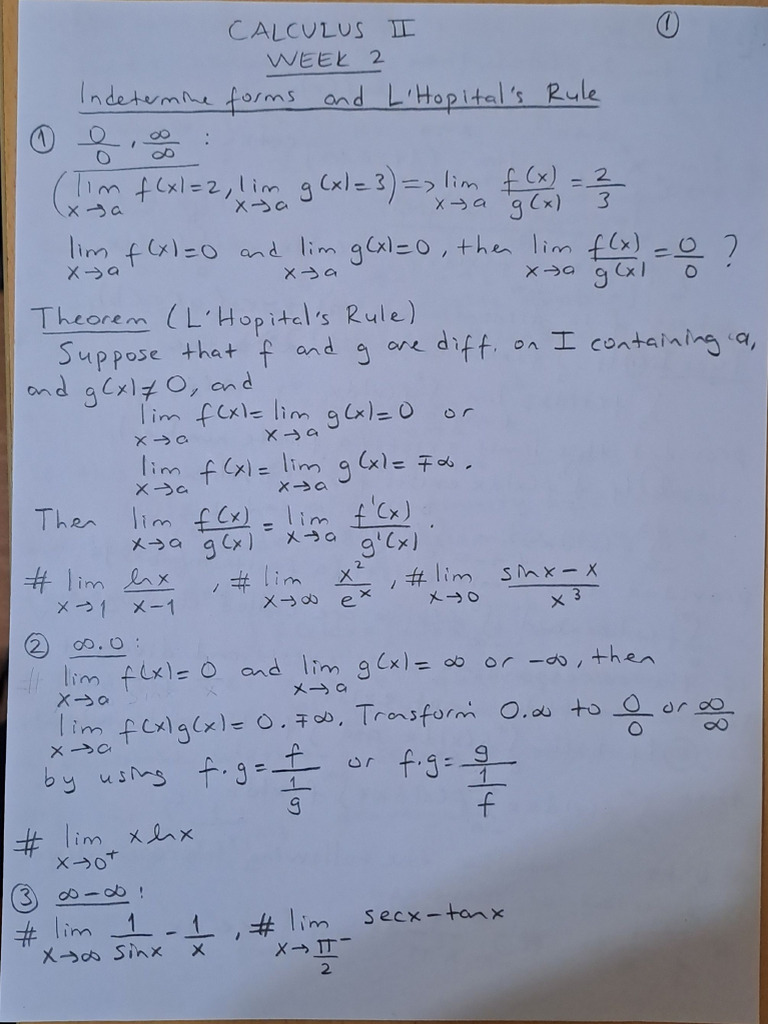 CALCULUS II ①
WEEK 2
Indetermine forms and L'Hopital's Rule
① 0/0 , ∞/∞ :
(lim x→a f(x)=2, lim x→a g(x)=3) => lim x→a f(x)/g(x) = 2/3
lim x→a f(x)=0 and lim x→a g(x)=0, then lim x→a f(x)/g(x) = 0/0 ?
Theorem (L'Hopital's Rule)
Suppose that f and g are diff. on I containing a,
and g(x)≠0, and
lim x→a f(x) = lim x→a g(x)=0 or
lim x→a f(x) = lim x→a g(x) = ∓∞.
Then lim x→a f(x)/g(x) = lim x→a f'(x)/g'(x).
# lim x→1 lnx/(x-1) , # lim x→∞ x²/eˣ , # lim x→0 (sinx-x)/x³
② ∞.0 :
lim x→a f(x)=0 and lim x→a g(x)=∞ or -∞, then
lim x→a f(x)g(x)=0.∓∞. Transform 0.∞ to 0/0 or ∞/∞
by using f.g = f/(1/g) or f.g = g/(1/f)
# lim x→0⁺ xlnx
③ ∞-∞ :
# lim x→∞ 1/sinx - 1/x , # lim x→π/2⁻ secx-tanx